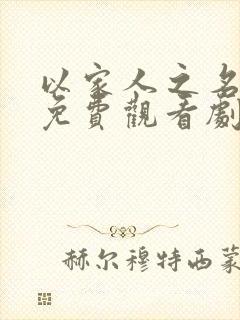 以家人之名
免費觀看劇
赫尔穆特西蒙